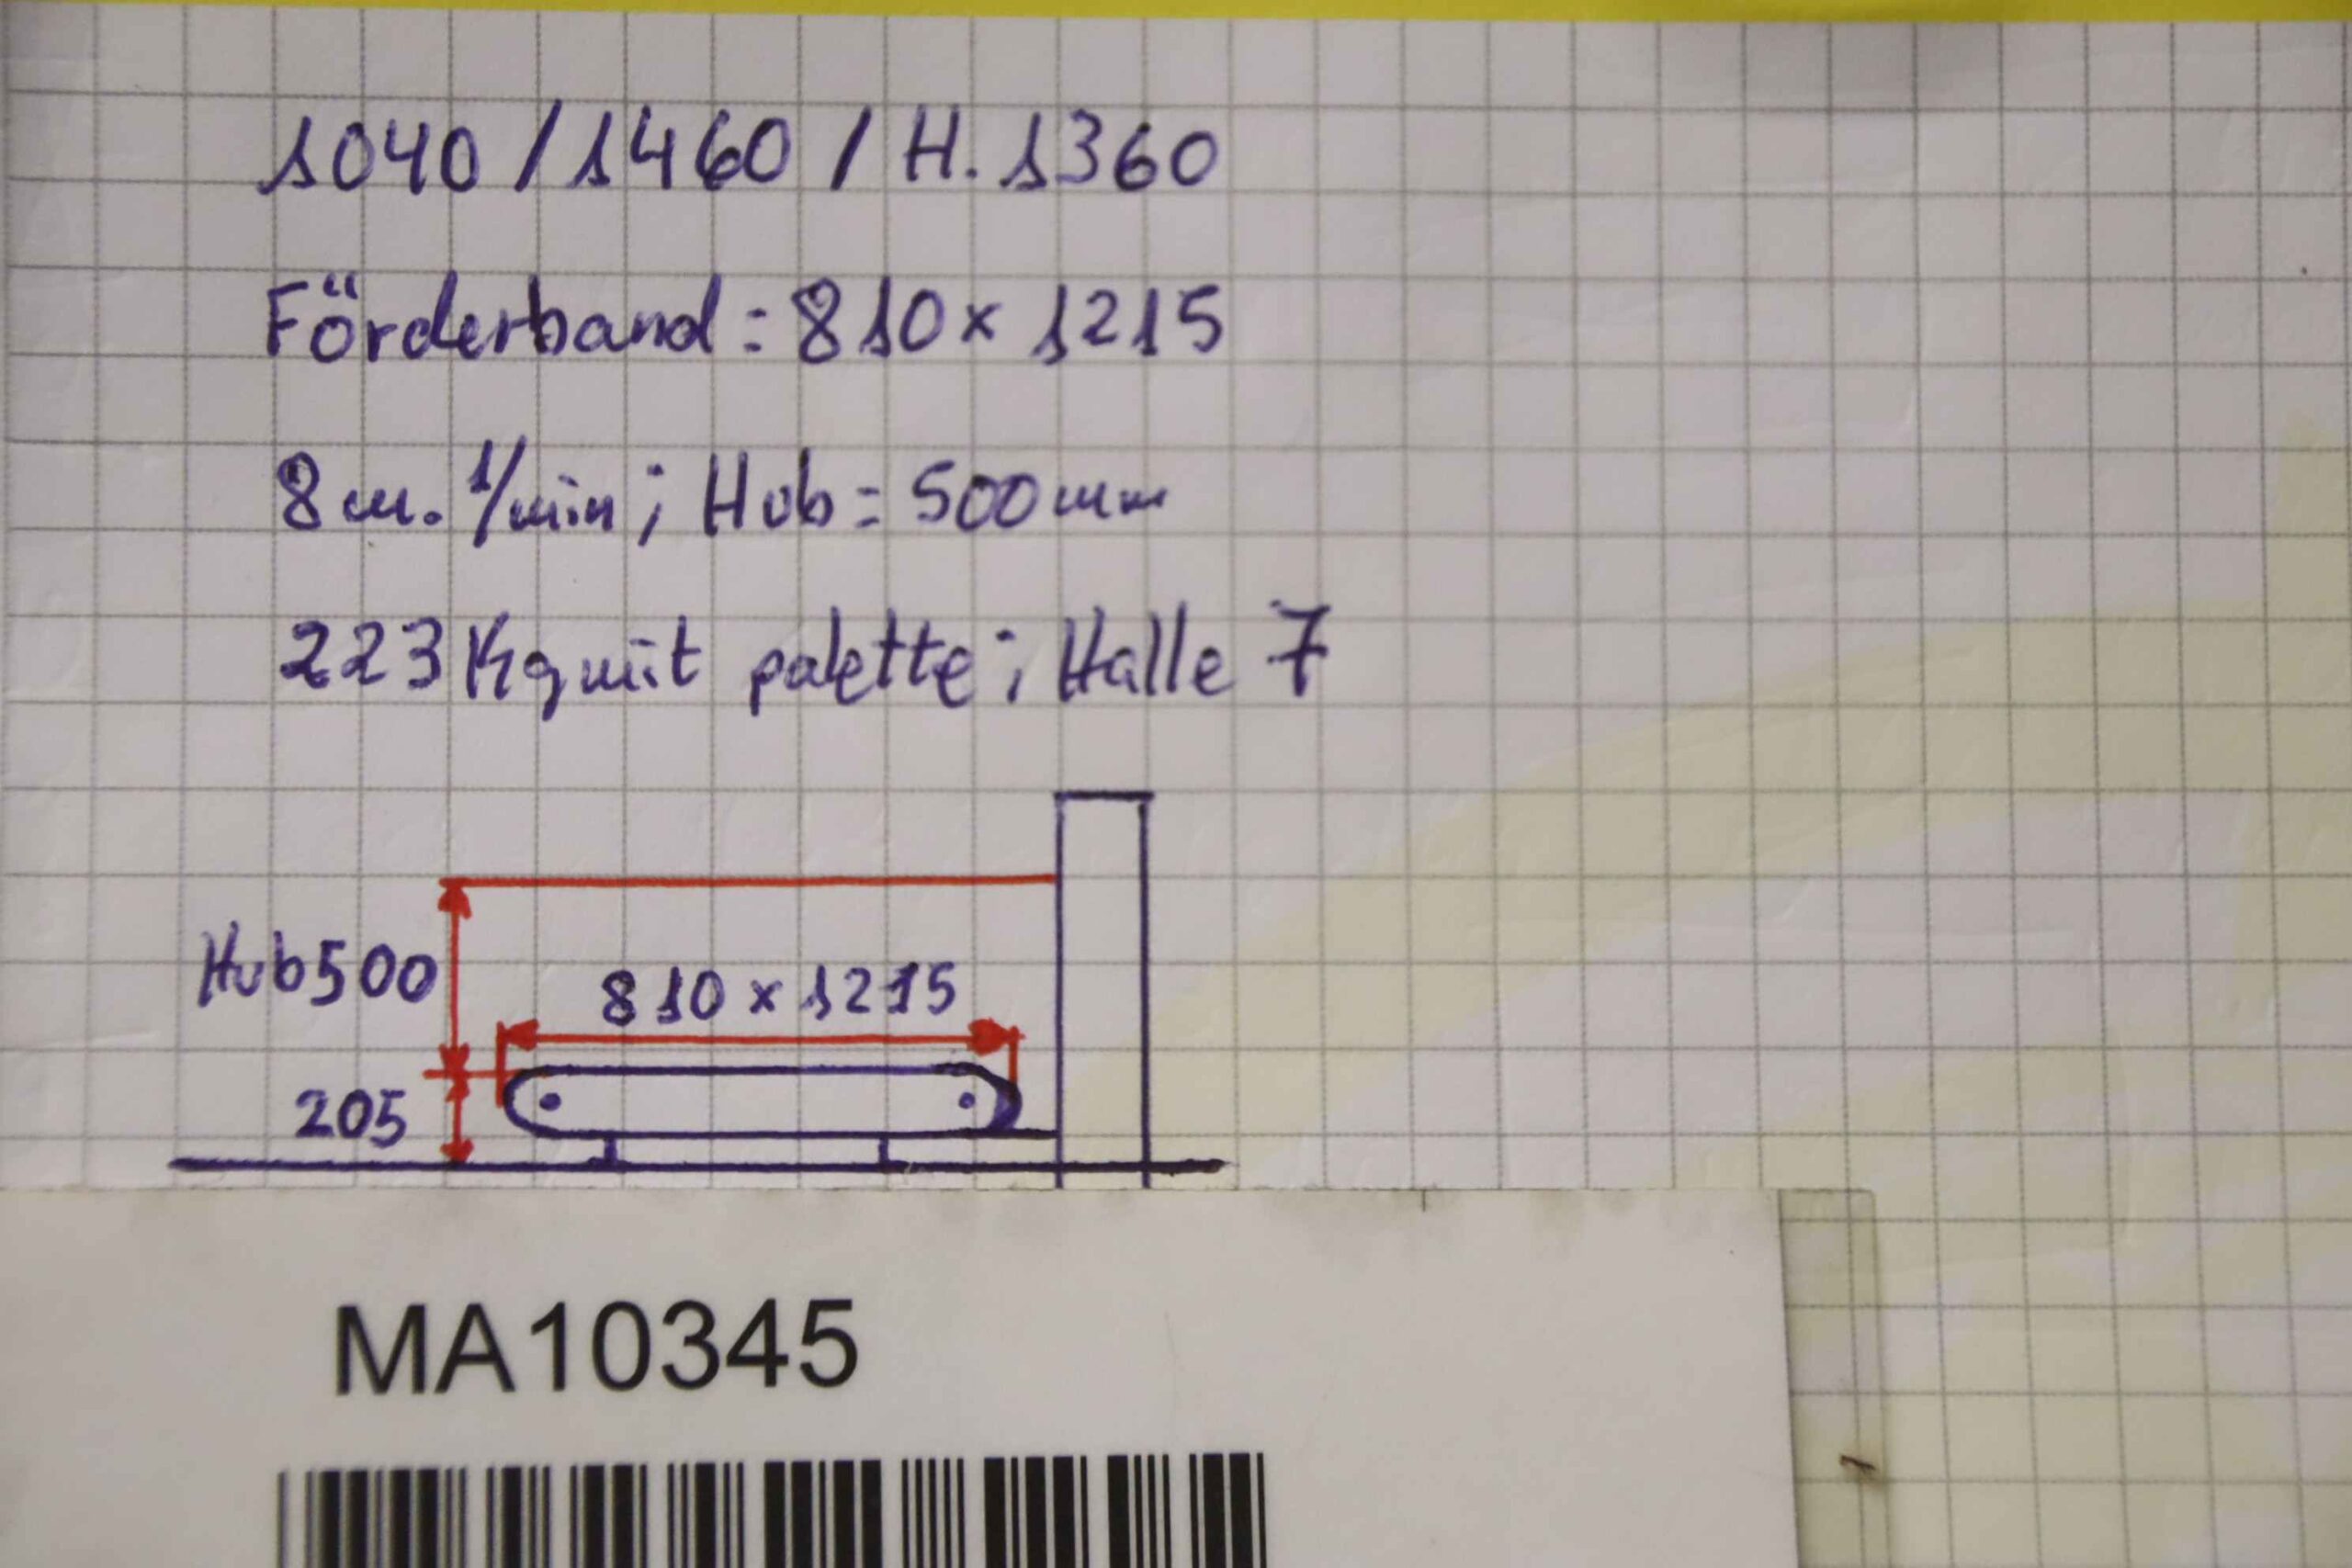 1040 / 1460 / H. 1360
Förderband = 810 x 1215
8 m. 1/min ; Hub = 500 mm
223 Kg mit palette ; Halle 7
Hub 500
810 x 1215
205
MA10345